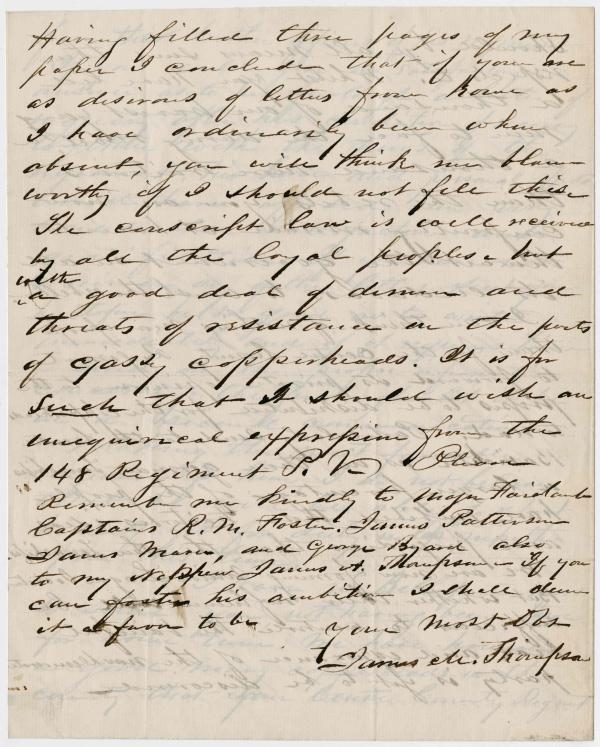 Having filled three pages of my
paper I conclude that if you are
as desirous of letters from home as
I have ordinarily been when
absent, you will think me blame
worthy if I should not fill this.
The conscript law is well received
by all the loyal peoples, but
with
a good deal of dimm and
threats of resistance on the parts
of gassy copperheads. It is for
such that I should wish an
unequivical expression from the
148 Regiment P. V. Please
Remember me kindly to Major Fairlamb
Captains R. M. Foster. James Patterson
and George Bayard also
to my Nephew James A. Thompson – If you
can foster his ambition I shall deem
it a favor to be your Most Obt
James M. Thompson